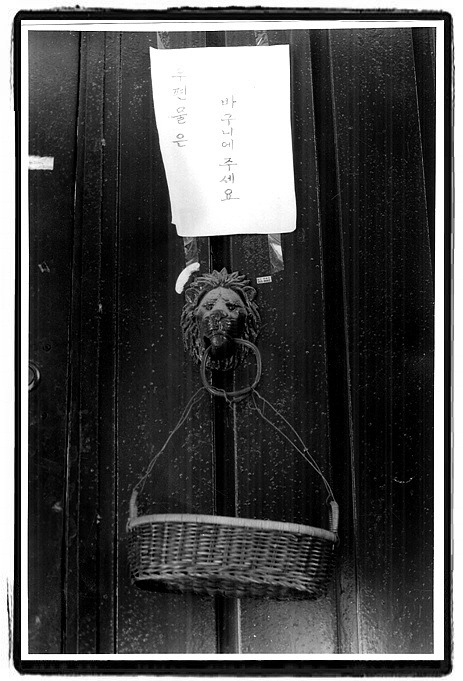 우편물은
바구니에 주세요